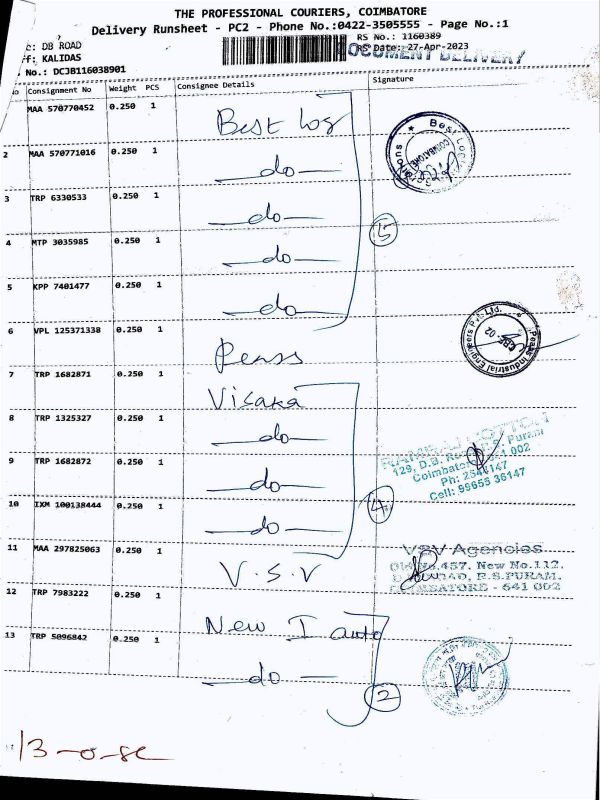 THE PROFESSIONAL COURIERS, COIMBATORE
Delivery Runsheet - PC2 - Phone No.:0422-3505555 - Page No.:1
RS No.: 1160389
: DB ROAD
DOCUMENT DELIVERY
RS Date: 27-Apr-2023
: KALIDAS
No.: DCJB116038901
Consignment No Weight PCS Consignee Details Signature
MAA 570770452 0.250 1 Best Log
2 MAA 570771016 0.250 1 do
3 TRP 6330533 0.250 1 do
4 MTP 3035985 0.250 1 do
5
5 KPP 7401477 0.250 1 do
6 VPL 125371338 0.250 1 Penss
7 TRP 1682871 0.250 1 Visaka
8 TRP 1325327 0.250 1 do
9 TRP 1682872 0.250 1 do
10 IXM 100138444 0.250 1 do
4
11 MAA 297825063 0.250 1 V.S.V
12 TRP 7983222 0.250 1 New I auto
13 TRP 5096842 0.250 1 do
2
Best
COIMBATORE
Peass Industrial Engineers Pvt. Ltd.
CBE. 02
COTTON
129, D.B. Puram
Coimbatore 002
Ph: 2546147
Cell: 99655 36147
VSV Agencies
Old No.457, New No.112,
R.S.PURAM,
COIMBATORE - 641 002